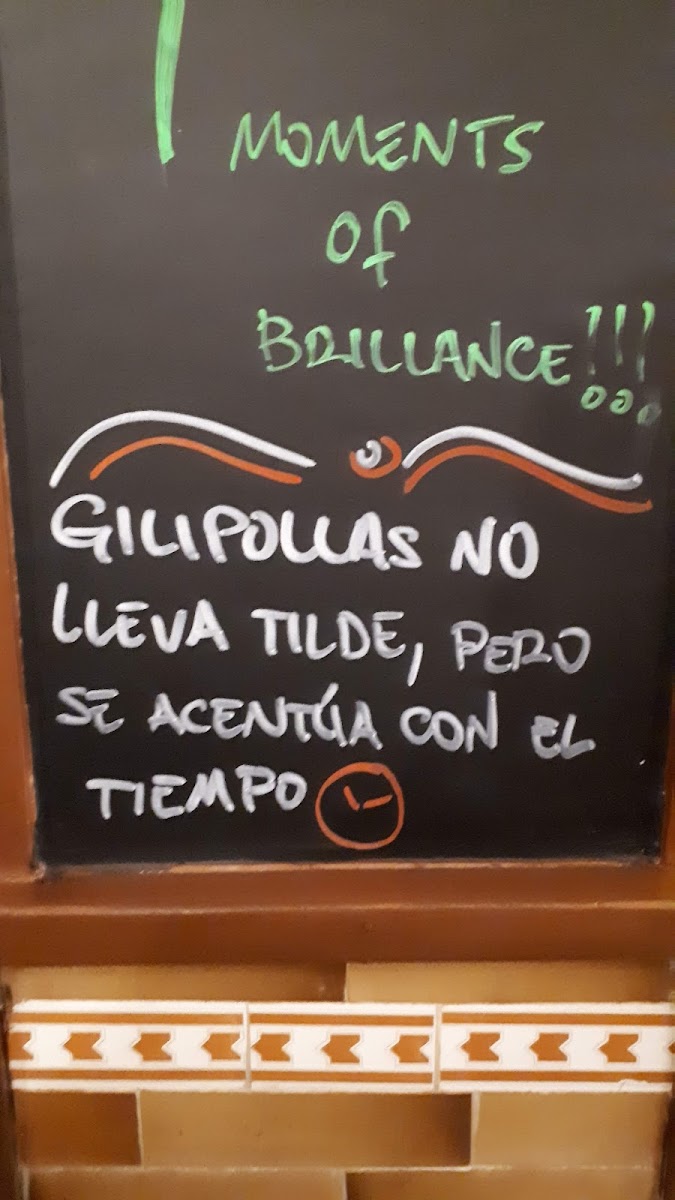 MOMENTS
of
BRILLANCE!!!
GILIPOLLAS NO
LLEVA TILDE, PERO
SE ACENTÚA CON EL
TIEMPO